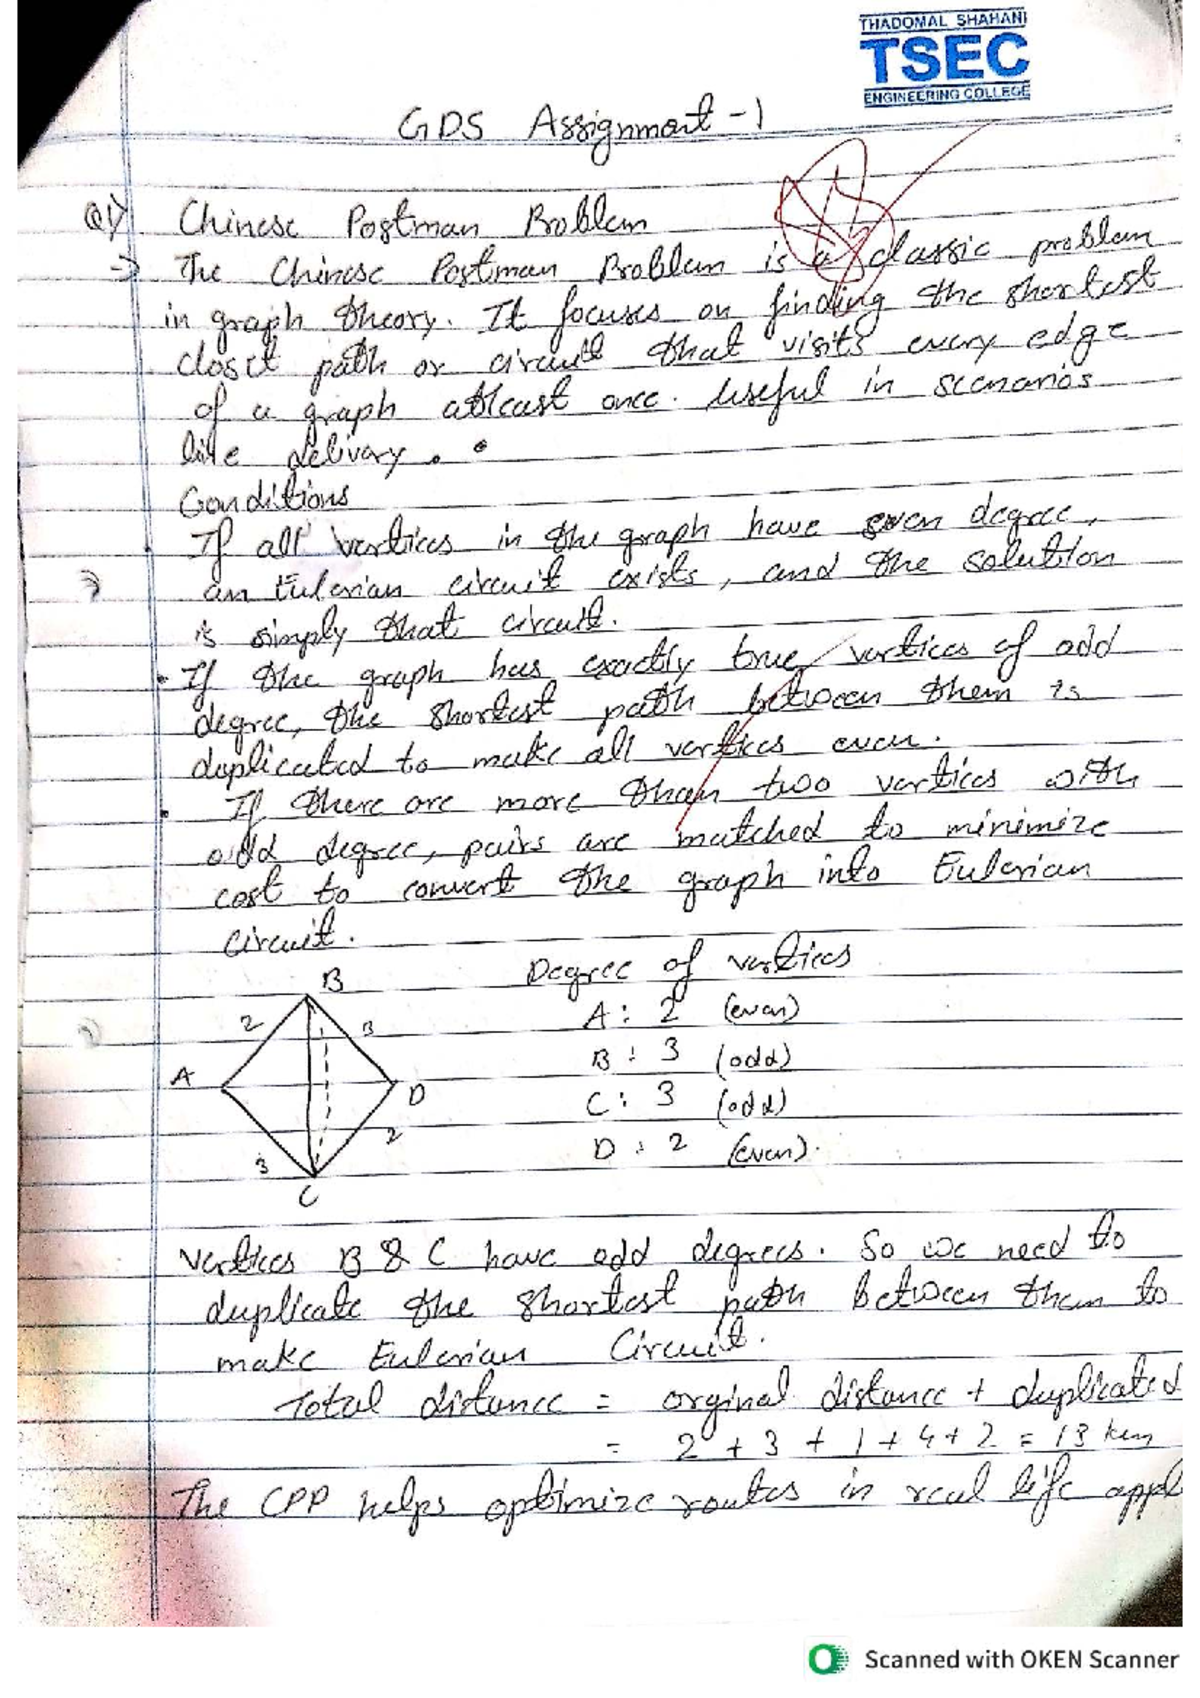 THADOMAL SHAHANI
TSEC
ENGINEERING COLLEGE
GDS Assignment - 1
Q1) Chinese Postman Problem
=> The Chinese Postman Problem is a classic problem
in graph theory. It focuses on finding the shortest
closet path or circuit that visits every edge
of a graph atleast once. Useful in scenarios
like delivery.
Conditions
If all vertices in the graph have even degree,
an Eulerian circuit exists, and the solution
is simply that circuit.
• If the graph has exactly true vertices of odd
degree, the shortest path between them is
duplicated to make all vertices even.
• If there are more than two vertices with
odd degree, pairs are matched to minimize
cost to convert the graph into Eulerian
circuit.
B
2
3
A
D
3
2
C
Degree of vertices
A : 2 (even)
B : 3 (odd)
C : 3 (odd)
D : 2 (even).
Vertices B & C have odd degrees. So we need to
duplicate the shortest path between them to
make Eulerian Circuit.
Total distance = orginal distance + duplicated
= 2 + 3 + 1 + 4 + 2 = 13 km
The CPP helps optimize routes in real life appl
Scanned with OKEN Scanner